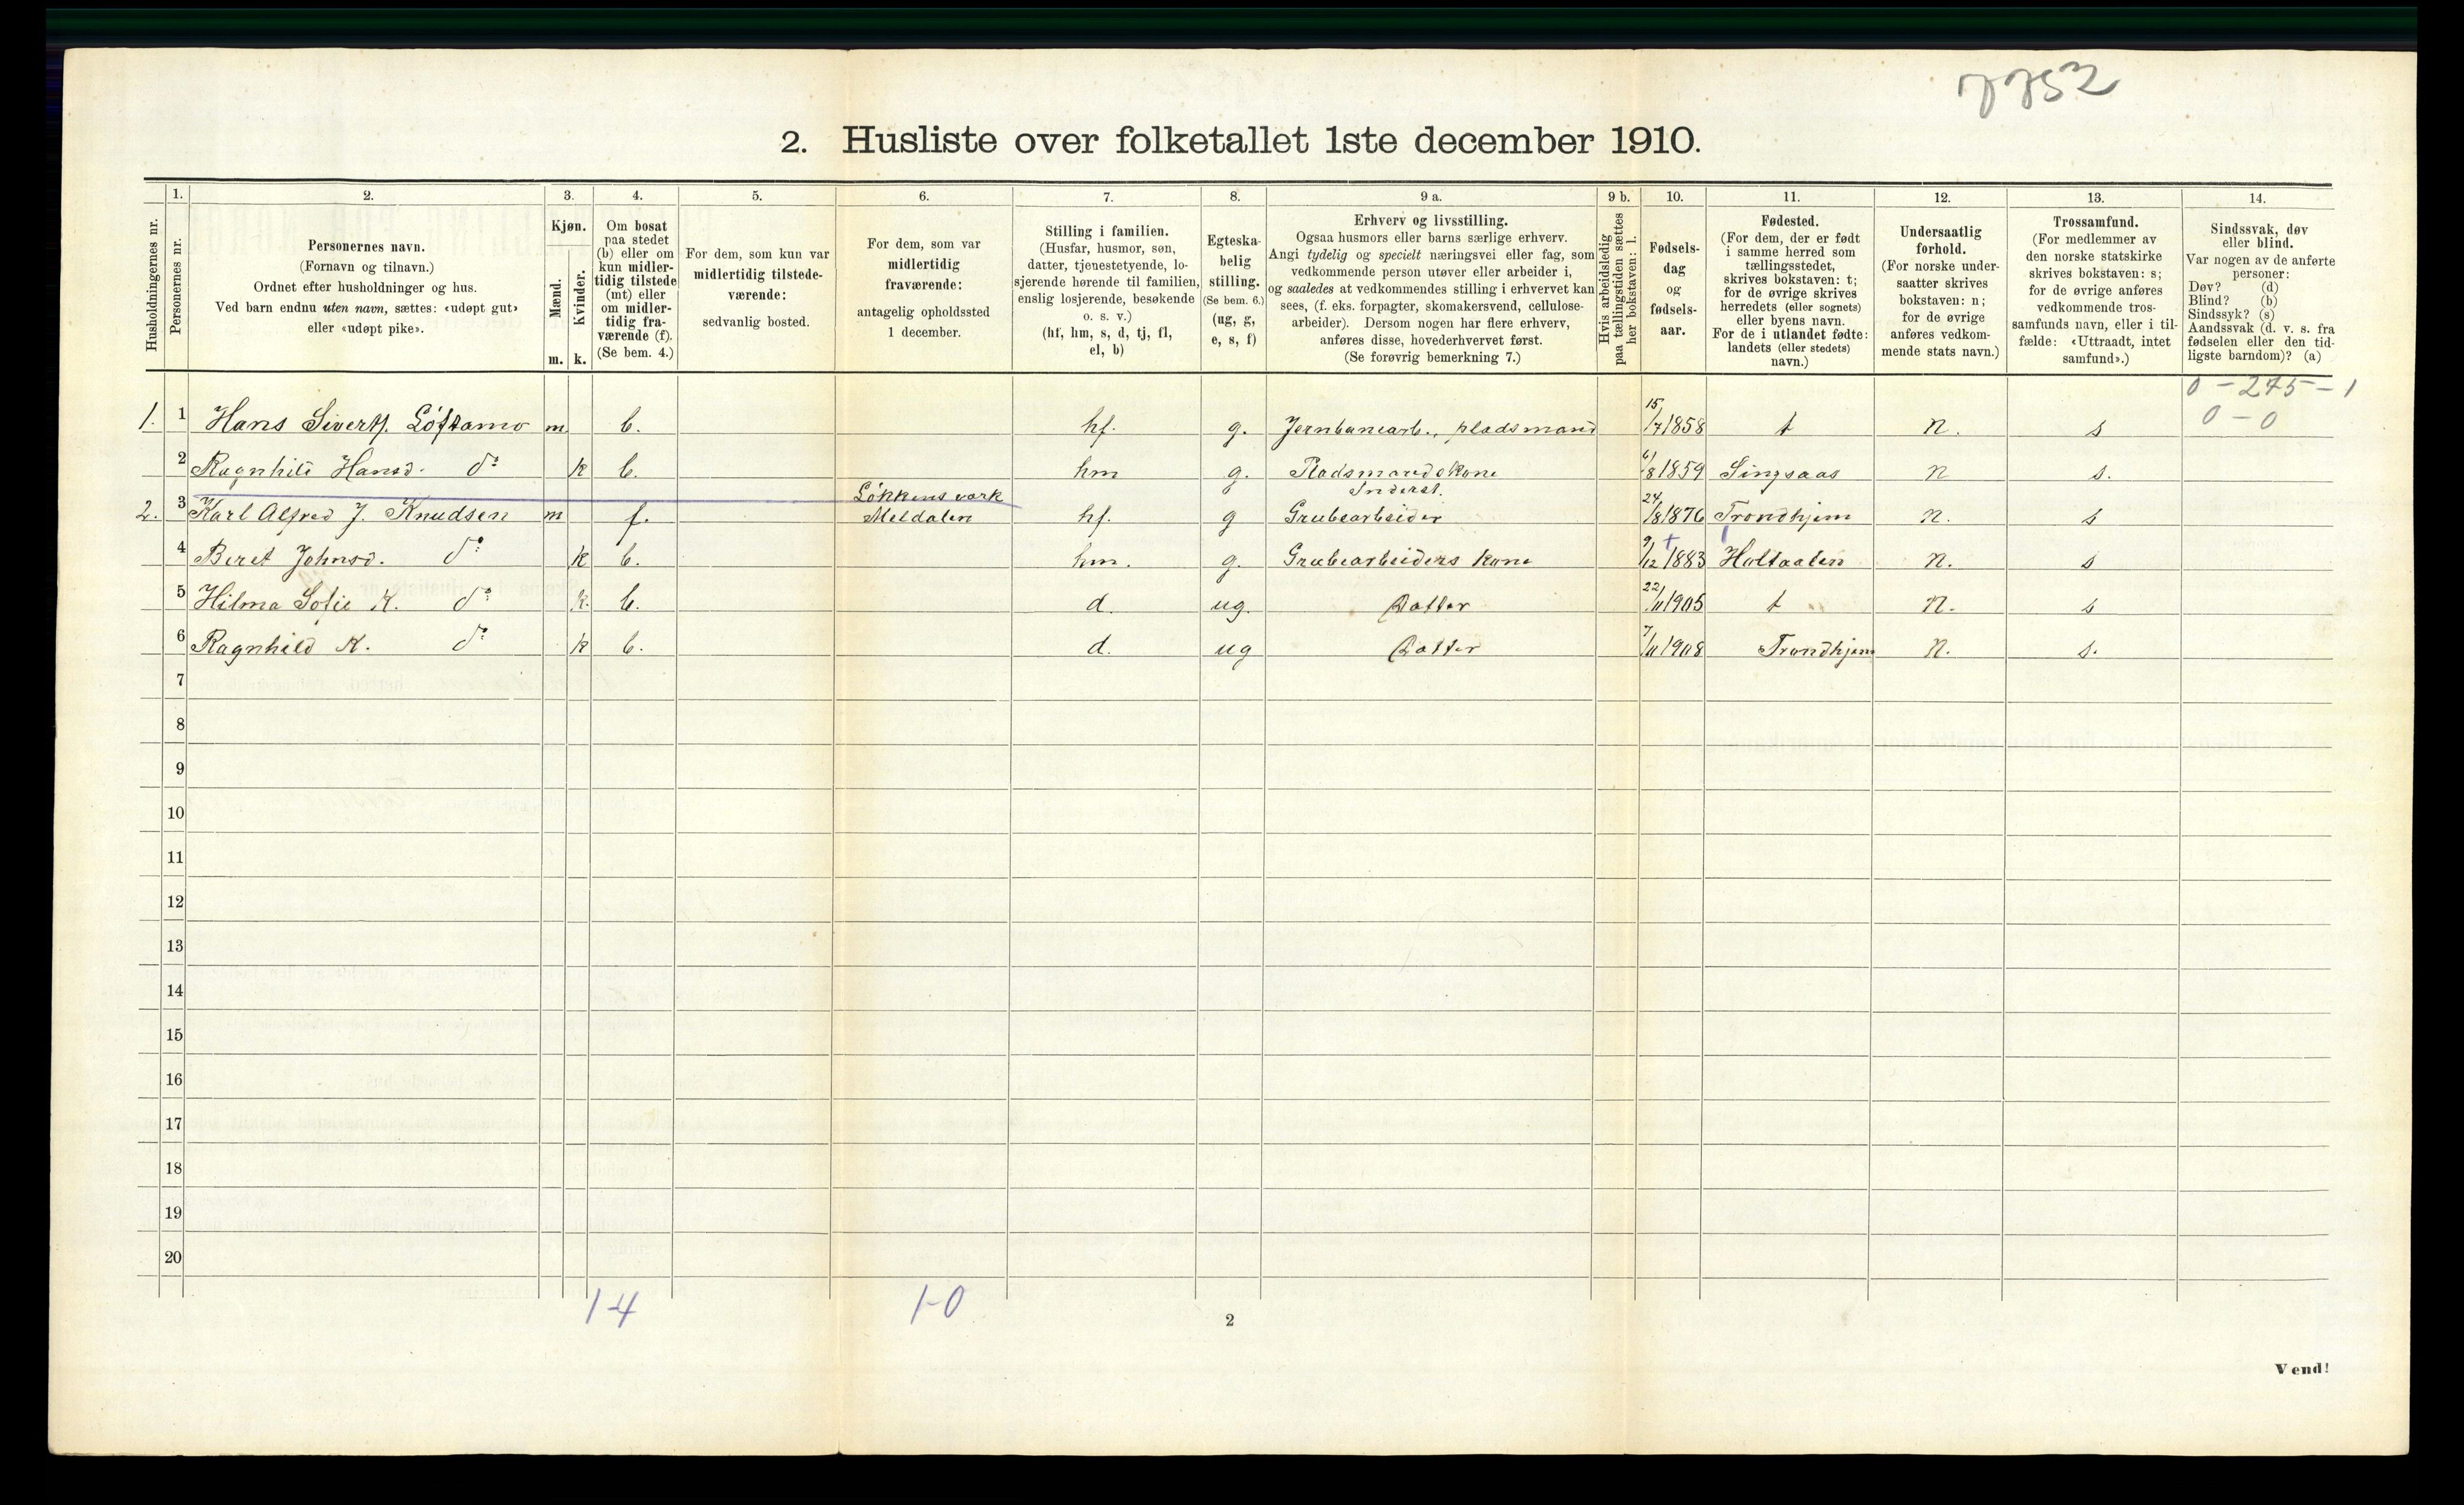 7752
2. Husliste over folketallet 1ste december 1910.
Husholdningernes nr.
1.
Personernes nr.
2.
Personernes navn.
(Fornavn og tilnavn.)
Ordnet efter husholdninger og hus.
Ved barn endnu uten navn, sættes: «udøpt gut»
eller «udøpt pike».
3.
Kjøn.
Mænd.
m.
Kvinder.
k.
4.
Om bosat
paa stedet
(b) eller om
kun midler-
tidig tilstede
(mt) eller
om midler-
tidig fra-
værende (f).
(Se bem. 4.)
5.
For dem, som kun var
midlertidig tilstede-
værende:
sedvanlig bosted.
6.
For dem, som var
midlertidig
fraværende:
antagelig opholdssted
1 december.
7.
Stilling i familien.
(Husfar, husmor, søn,
datter, tjenestetyende, lo-
sjerende hørende til familien,
enslig losjerende, besøkende
o. s. v.)
(hf, hm, s, d, tj, fl,
el, b)
8.
Egteska-
belig
stilling.
(Se bem. 6.)
(ug, g,
e, s, f)
9 a.
Erhverv og livsstilling.
Ogsaa husmors eller barns særlige erhverv.
Angi tydelig og specielt næringsvei eller fag, som
vedkommende person utøver eller arbeider i,
og saaledes at vedkommendes stilling i erhvervet kan
sees, (f. eks. forpagter, skomakersvend, cellulose-
arbeider). Dersom nogen har flere erhverv,
anføres disse, hovederhvervet først.
(Se forøvrig bemerkning 7.)
9 b.
Hvis arbeidsledig
paa tællingstiden sættes
her bokstaven: l.
10.
Fødsels-
dag
og
fødsels-
aar.
11.
Fødested.
(For dem, der er født
i samme herred som
tællingsstedet,
skrives bokstaven: t;
for de øvrige skrives
herredets (eller sognets)
eller byens navn.
For de i utlandet fødte:
landets (eller stedets)
navn.)
12.
Undersaatlig
forhold.
(For norske under-
saatter skrives
bokstaven: n;
for de øvrige
anføres vedkom-
mende stats navn.)
13.
Trossamfund.
(For medlemmer av
den norske statskirke
skrives bokstaven: s;
for de øvrige anføres
vedkommende tros-
samfunds navn, eller i til-
fælde: «Uttraadt, intet
samfund».)
14.
Sindssvak, døv
eller blind.
Var nogen av de anførte
personer:
Døv? (d)
Blind? (b)
Sindssyk? (s)
Aandssvak (d. v. s. fra
fødselen eller den tid-
ligste barndom)? (a)
0 - 245 - 1
0 - 0
1. 1 Hans Sivert. Löftamo m b. hf. g. Jernbanearb., pladsmand 15/7 1858 t n. s
2 Ragnhild Hansd. do k b. hm g. Pladsmandskone 6/8 1859 Singsaas n s.
2. 3 Karl Alfred J. Knudsen m f. Løkkens værk Meldalen hf. g Inderst. Grubearbeider 24/8 1876 Trondhjem n. s
4 Beret Johnsd. do k b. hm. g. Grubearbeiders kone 9/12 1883 Holtaalen n. s
5 Hilma Sofie K. do k. b. d. ug. Datter 22/11 1905 t n. s
6 Ragnhild K. do k b. d. ug Datter 7/11 1908 Trondhjem n. s.
7
8
9
10
11
12
13
14
15
16
17
18
19
20
1-4 1-0
2
Vend!